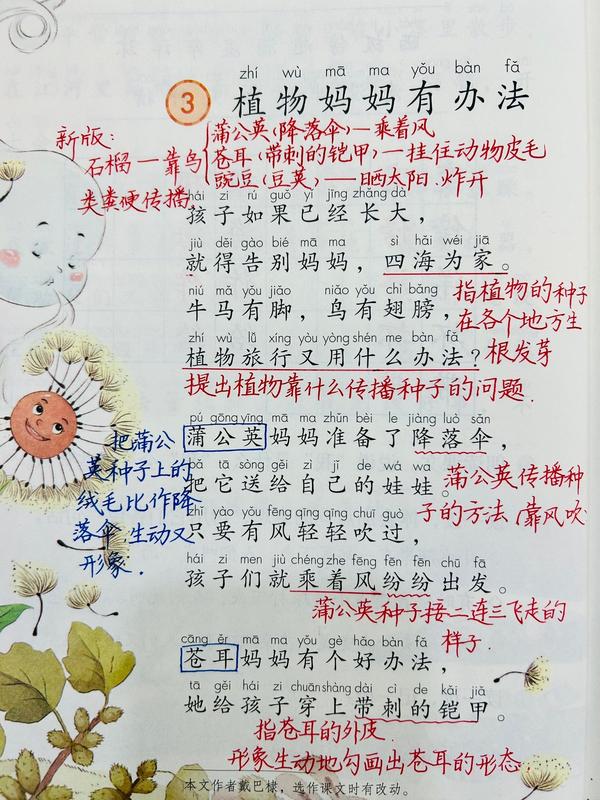 zhí wù mā ma yǒu bàn fǎ
3 植物妈妈有办法
新版:
石榴—靠鸟
类粪便传播
蒲公英(降落伞)—乘着风
苍耳(带刺的铠甲)—挂住动物皮毛
豌豆(豆荚)——晒太阳、炸开
hái zi rú guǒ yǐ jīng zhǎng dà
孩子如果已经长大，
jiù děi gào bié mā ma sì hǎi wéi jiā
就得告别妈妈，四海为家。
niú mǎ yǒu jiǎo niǎo yǒu chì bǎng
牛马有脚，鸟有翅膀，
指植物的种子
在各个地方生
根发芽
zhí wù lǚ xíng yòu yòng shén me bàn fǎ
植物旅行又用什么办法？
提出植物靠什么传播种子的问题.
pú gōng yīng mā ma zhǔn bèi le jiàng luò sǎn
蒲公英妈妈准备了降落伞，
把蒲公
英种子上的
绒毛比作降
落伞 生动又
形象.
bǎ tā sòng gěi zì jǐ de wá wa
把它送给自己的娃娃。
蒲公英传播种
子的方法(靠风吹
zhǐ yào yǒu fēng qīng qīng chuī guò
只要有风轻轻吹过，
hái zi men jiù chéng zhe fēng fēn fēn chū fā
孩子们就乘着风纷纷出发。
蒲公英种子接二连三飞走的
样子.
cāng ěr mā ma yǒu gè hǎo bàn fǎ
苍耳妈妈有个好办法，
tā gěi hái zi chuān shàng dài cì de kǎi jiǎ
她给孩子穿上带刺的铠甲。
指苍耳的外皮
形象生动地勾画出苍耳的形态
本文作者戴巴棣，选作课文时有改动。